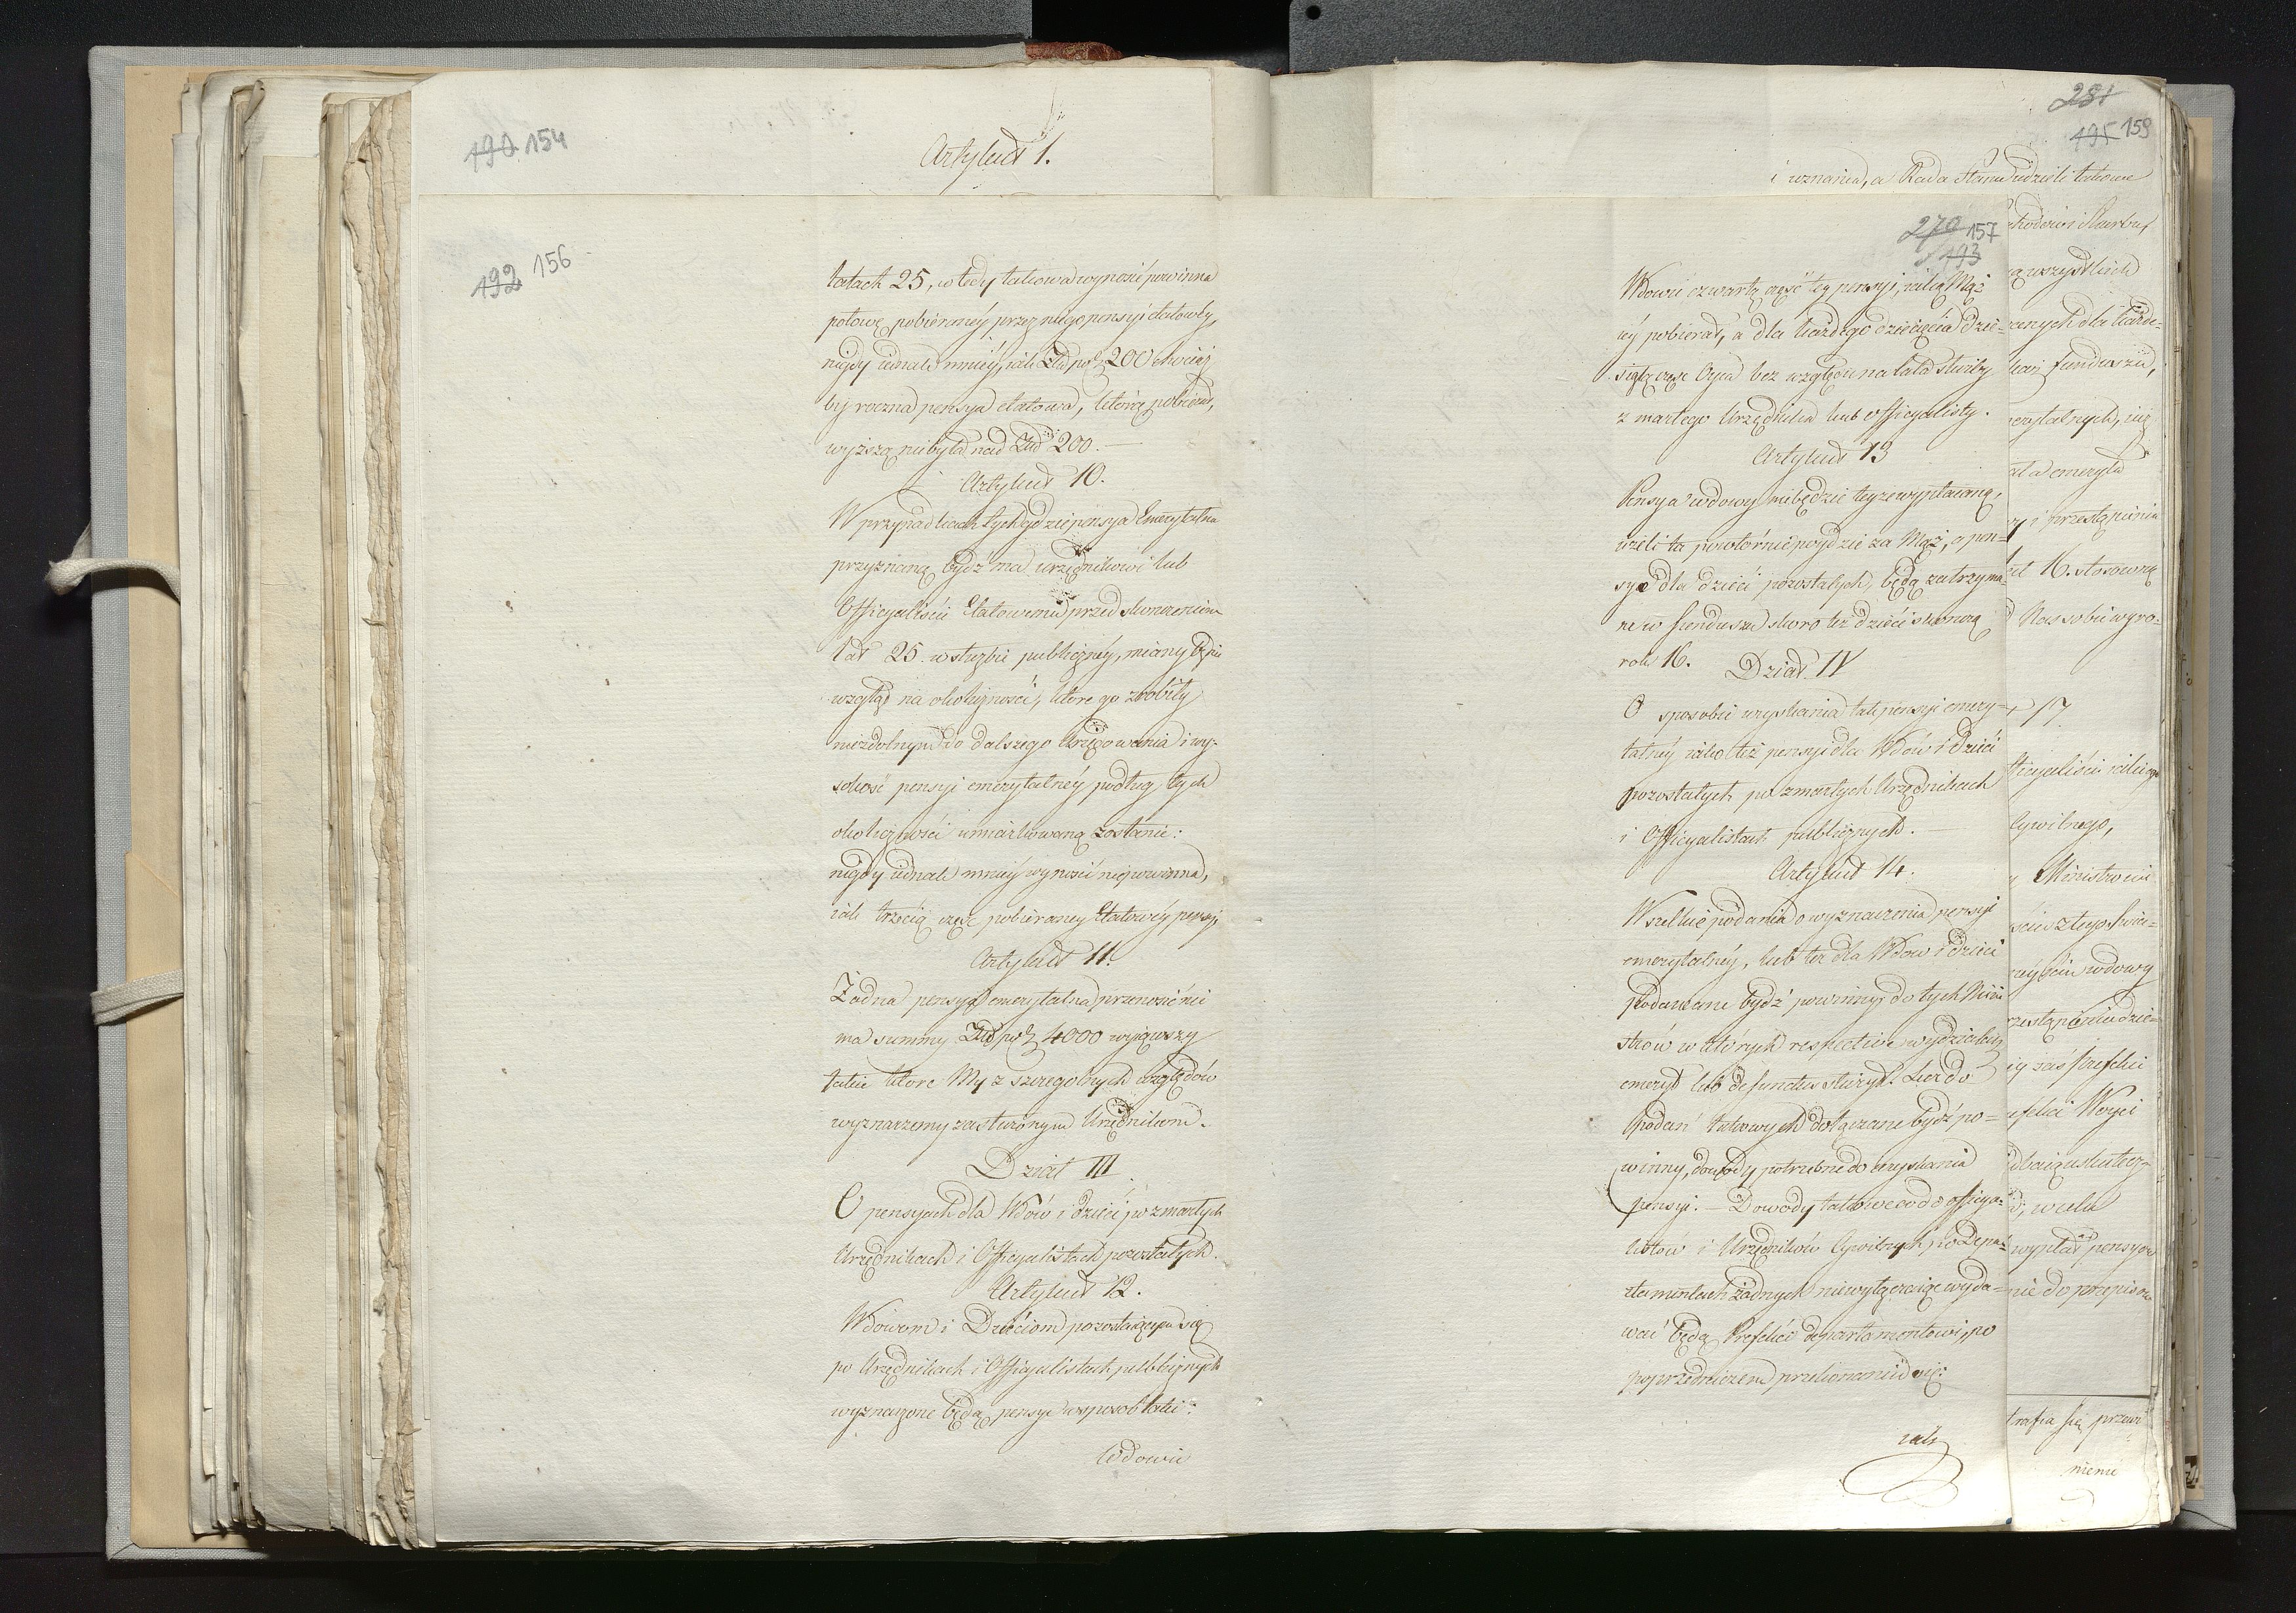 190 154
Artykuł 1.
192 156
latach 25, wtedy takowa wynosić powinna
połowę pobieranéy przez niego pensyi etatowéy,
nigdy iednak mniéy, iak Złł pol: 200 chociaż
by roczna pensya etatowa, którą pobierał,
wyższą niebyła nad Złł 200. —
Artykuł 10.
W przypadkach tych gdzie pensya Emerytalna
przyznaną bydź ma urzędnikowi lub
Officyaliście Etatowemu przed skończeniem
lat 25. w służbie publicznéy, miany będzie
wzgląd na okoliczności, które go zrobiły
niezdolnym do dalszego Urzędowania i wy-
sokość pensyi emerytalnéy podług tych
okoliczności umiarkowaną zostanie:
nigdy iednak mniéy wynosić niepowinna,
iak trzecią część pobieraney Etatowéy pensyi
Artykuł 11.
Żadna pensya emerytalna przenosić nie
ma summy Złł pol: 4000 wyiąwszy
takie które My z szczególnych względów
wyznaczemy zasłużonym Urzędnikom.
Dział III
O pensyach dla Wdów i dzieci po zmarłych
Urzędnikach i Officyalistach pozostałych.
Artykuł 12.
Wdowom i Dzieciom pozostaiącym się
po Urzędnikach i Officyalistach publicznych
wyznaczone będą pensye w sposób taki:
Wdowie
281
195 159
i uznania, a Rada Stanu udzieli takowe
279 157
193
Wdowie czwartą część téy pensyi, iaką Mąż
iéy pobierał, a dla każdego dziecięcia dzie-
siątą część Oyca bez względu na lata służby
zmarłego Urzędnika lub officyalisty.
Artykuł 13
Pensya wdowy niebędzie iéy że wypłacaną,
ieżeli ta powtórnie poydzie za Mąż, a pen-
sye dla dzieci pozostałych, będą zatrzyma-
ne w funduszu skoro też dzieci skończą
rok 16.
Dział IV
O sposobie uzyskania tak pensyi emery-
talnéy iako też pensyi dla Wdów i dzieci
pozostałych po zmarłych Urzędnikach
i Officyalistach publicznych. —
Artykuł 14.
Wszelkie podania o wyznaczenia pensyi
emerytalnéy, lub też dla Wdow i dzieci
podawane bydź powinny, do tych Mini-
strów w których respective wydziałach
emeryt lub defunctus służył. Lecz do
podań takowych dołączane bydź po-
winny, dowody potrzebne do uzyskania
pensyi. — Dowody takowe co do officya-
listów i Urzędników Cywilnych, po Depar-
tamentach żadnych niewyłączaiąc wyda-
wać będą Prefekci departamentowi, po
poprzedniczem przekonaniu się:
iak
wszystkich
fundusza,
emeryta
i przestąpienia
16. stosowną
Nas sobie wyro-
17
Cywilnego,
Ministrowie
wdowy
zaś Prefekci
Woyci
wielu
wypłat pensyów
nie do przepisu
trafia się przewi-
nienie